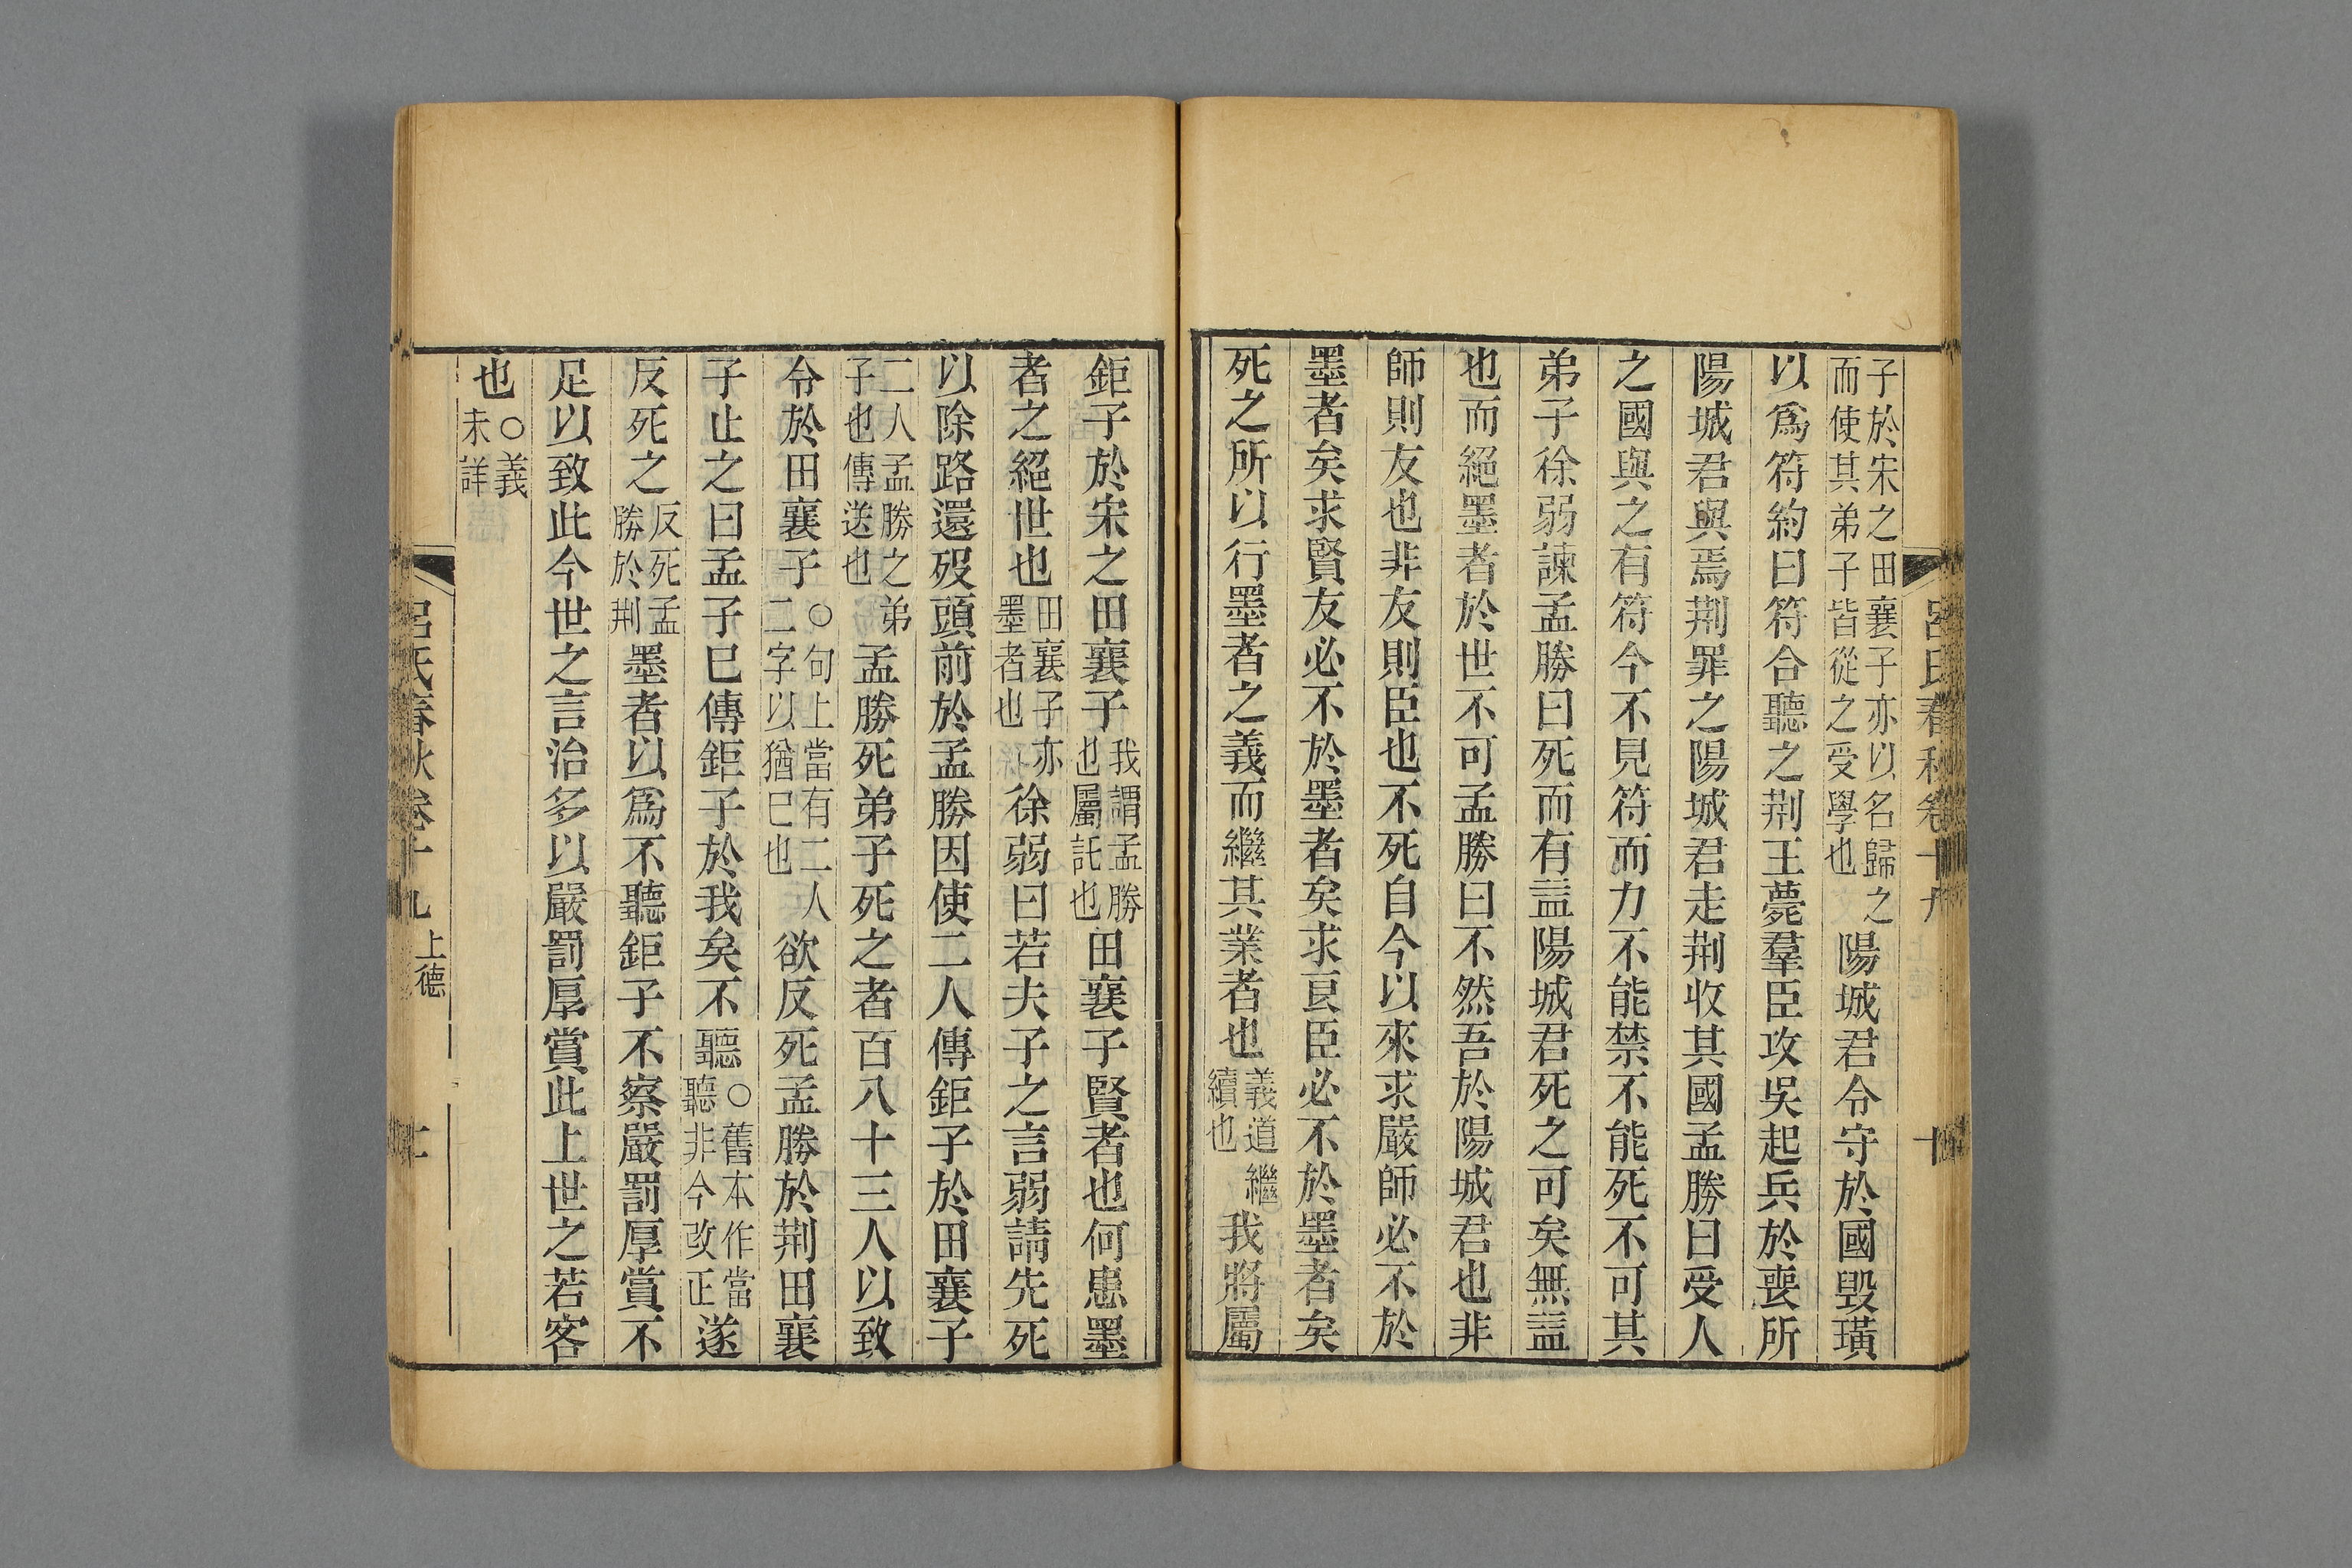 呂氏春秋卷十九 十
子於宋之田襄子亦以名歸之
而使其弟子皆從之受學也
陽城君令守於國毀璜
以爲符約曰符合聽之荆王薨羣臣攻吳起兵於喪所
陽城君與焉荆罪之陽城君走荆收其國孟勝曰受人
之國與之有符今不見符而力不能禁不能死不可其
弟子徐弱諫孟勝曰死而有益陽城君死之可矣無益
也而絕墨者於世不可孟勝曰不然吾於陽城君也非
師則友也非友則臣也不死自今以來求嚴師必不於
墨者矣求賢友必不於墨者矣求良臣必不於墨者矣
死之所以行墨者之義而繼其業者也
義道繼
續也
我將屬
鉅子於宋之田襄子
我謂孟勝
也屬託也
田襄子賢者也何患墨
者之絕世也
田襄子亦
墨者也
徐弱曰若夫子之言弱請先死
以除路還歿頭前於孟勝因使二人傳鉅子於田襄子
二人孟勝之弟
子也傳送也
孟勝死弟子死之者百八十三人以致
令於田襄子
○句上當有二人
二字以猶已也
欲反死孟勝於荆田襄
子止之曰孟子巳傳鉅子於我矣不聽
○舊本作當
聽非今改正
遂
反死之
反死孟
勝於荆
墨者以爲不聽鉅子不察嚴罰厚賞不
足以致此今世之言治多以嚴罰厚賞此上世之若客
也
○義
未詳
呂氏春秋卷十九 上德